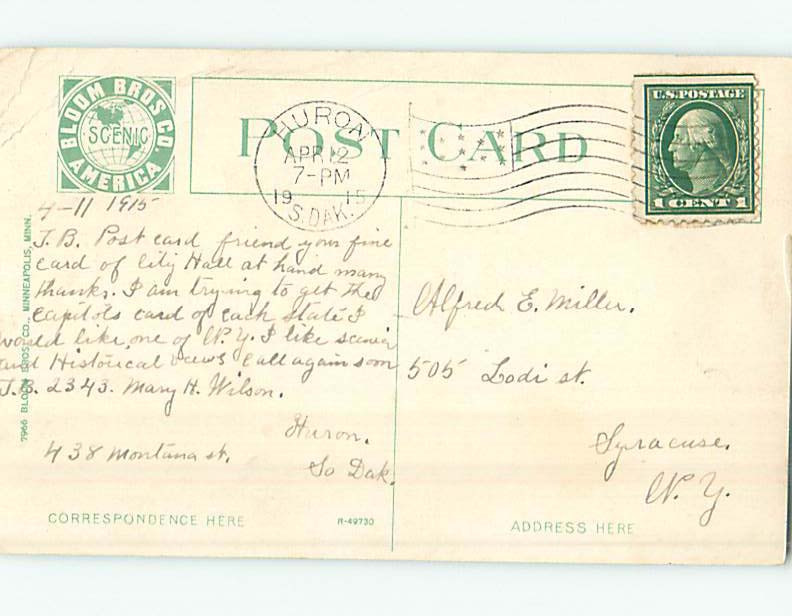 BLOOM BROS CO
SCENIC
AMERICA
POST CARD
HURON
APR 12
7-PM
1915
S. DAK.
U.S. POSTAGE
1 CENT 1
4-11 1915
J. B. Post card friend your fine
card of City Hall at hand many
thanks. I am trying to get the
Capitols card of each state I
would like one of N. Y. I like scenic
and Historical views Call again soon
J. B. 2343. Mary H. Wilson.
Huron.
438 Montana st.
So Dak.
Alfred E. Miller.
505 Lodi st.
Syracuse.
N. Y.
7966 BLOOM BROS. CO., MINNEAPOLIS, MINN.
CORRESPONDENCE HERE
R-49730
ADDRESS HERE